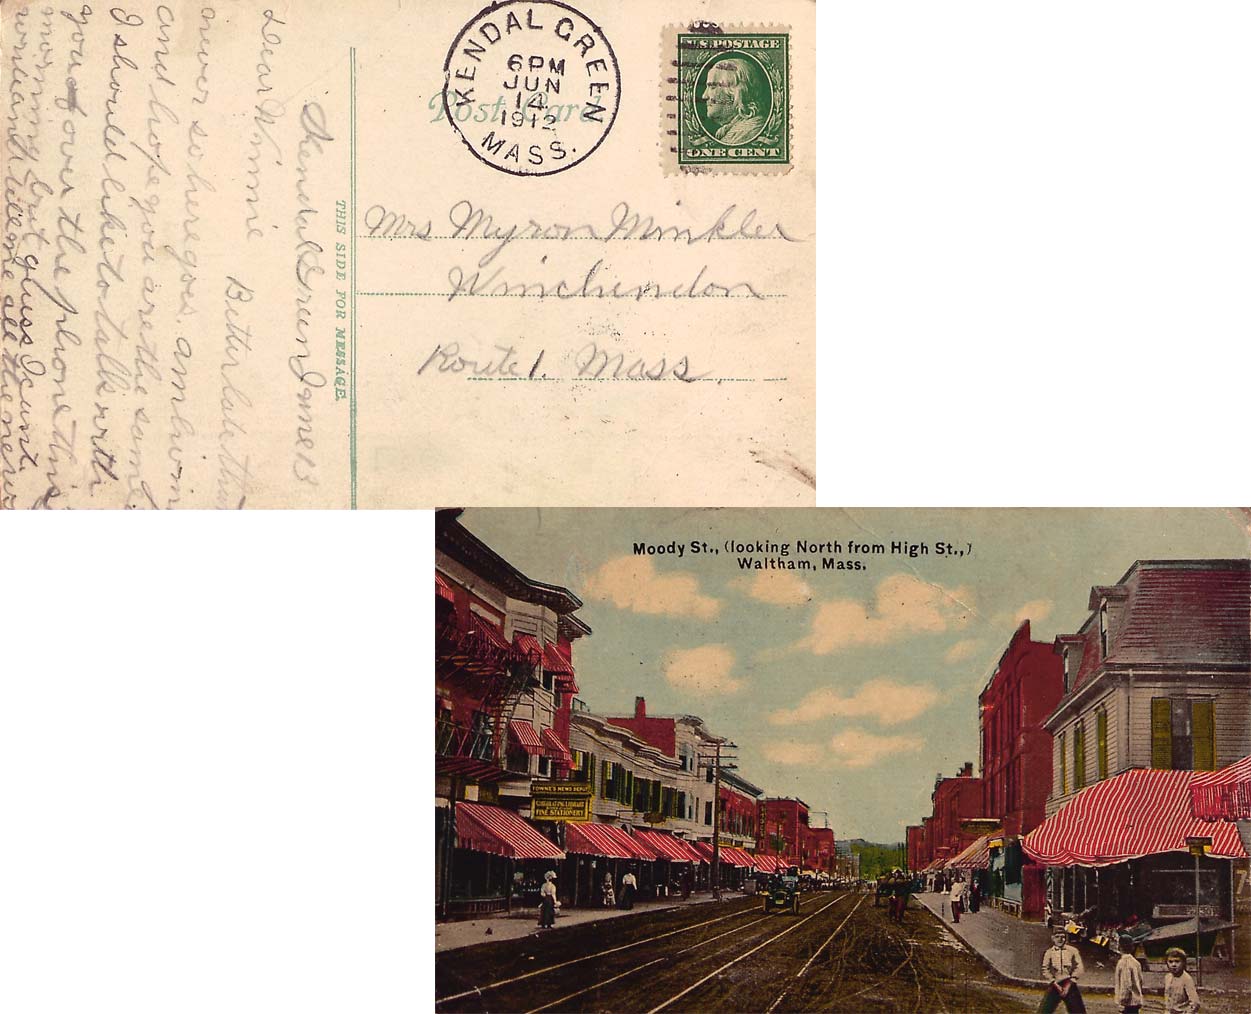 KENDAL GREEN
6PM
JUN
14
1912
MASS.
U.S. POSTAGE
ONE CENT
Post Card
THIS SIDE FOR MESSAGE.
Mrs Myron Minkler
Winchendon
Route 1. Mass.
Kendal Green June 13
Dear Winnie
Better late than
never so here goes. am living
and hope you are the same
I should like to talk with
you over the phone this
morning but guess I cant.
write and tell me all the news
Moody St., (looking North from High St.,)
Waltham, Mass.
TOWNE'S NEWS DEPOT
CIRCULATING LIBRARY
FINE STATIONERY